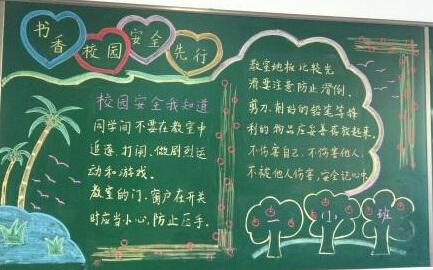 书香 校园 安全 先行
校园安全我知道
同学间不要在教室中
追逐、打闹、做剧烈运
动和游戏。
教室的门、窗户在开关
时应当小心,防止压手。
教室地板比较光
滑要注意防止滑倒。
剪刀、削好的铅笔等锋
利的物品应妥善存放起来。
不伤害自己,不伤害他人,
不被他人伤害,安全记心中。
(1) 班